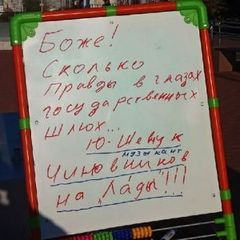 Боже!
Сколько
правды в глазах
государственных
шлюх...
Ю. Шевчук
музыкант
Чиновников
на „Лады"!!!